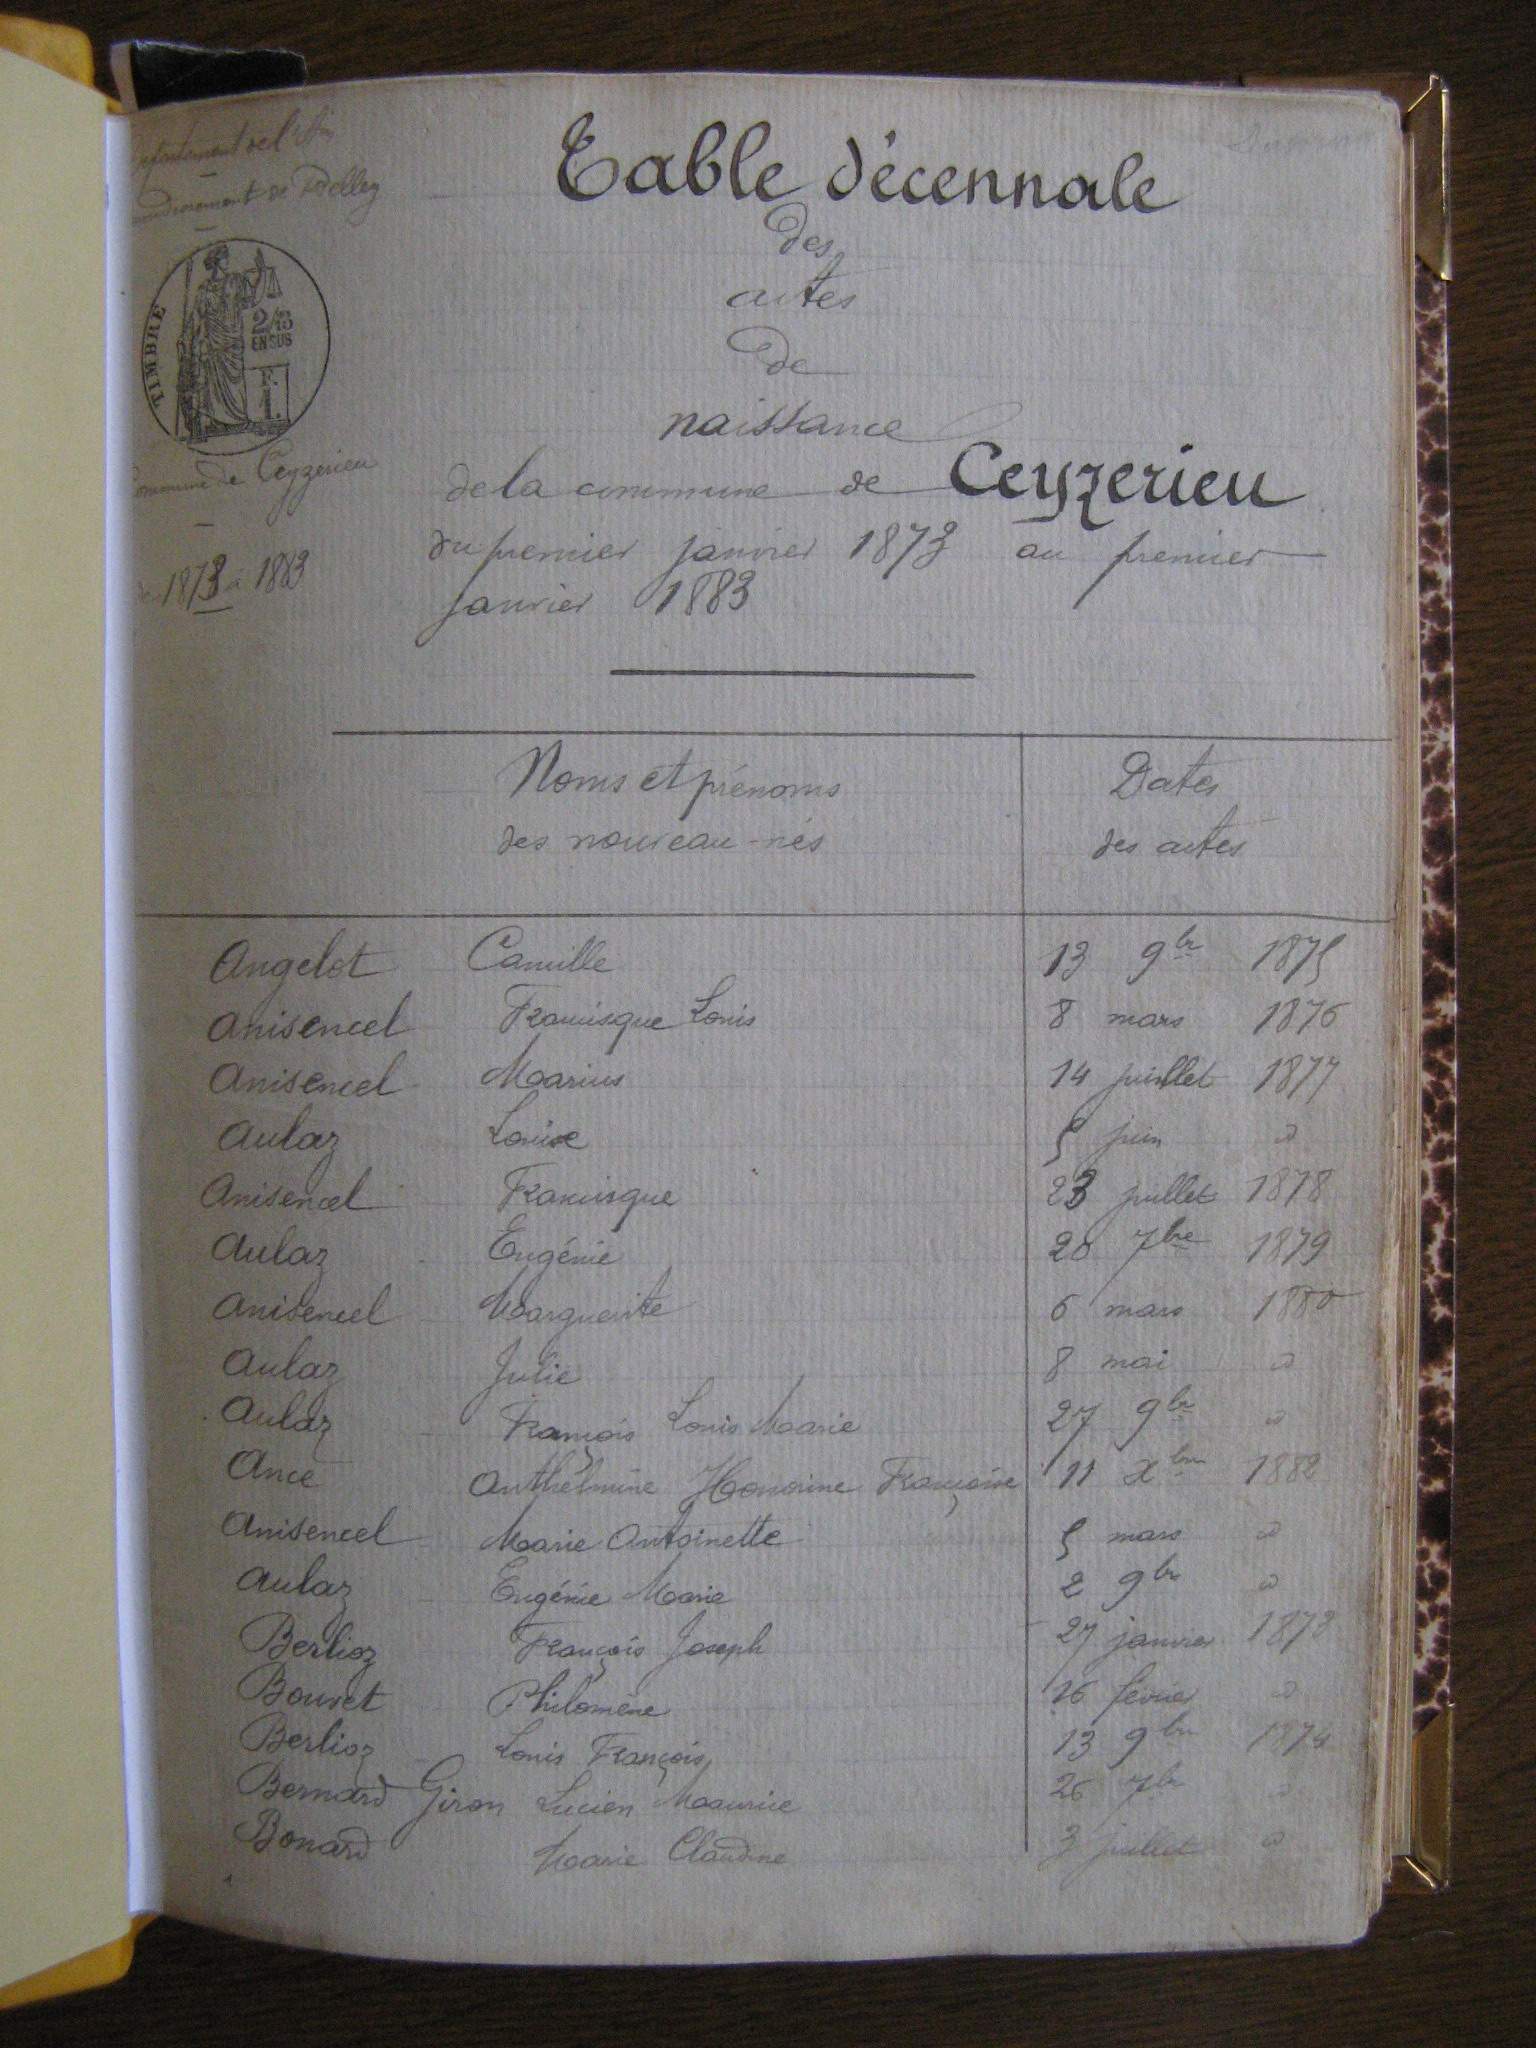 Département de l'Ain
arrondissement de Belley
TIMBRE
2/10
EN SUS
Commune de Ceyzerieu
de 1873 à 1883
Table décennale
des
actes
de
naissance
de la commune de Ceyzerieu
du premier janvier 1873 au premier
janvier 1883
Noms et prénoms Dates
des nouveau-nés des actes
Angelot Camille 13 9bre 1875
Anisencel Francisque Louis 8 mars 1876
Anisencel Marius 14 juillet 1877
Aulaz Louise 5 juin d
Anisencel Francisque 23 juillet 1878
Aulaz Eugénie 20 7bre 1879
Anisencel Marguerite 6 mars 1880
Aulaz Julie 8 mai d
Aulaz François Louis Marie 27 9bre d
Ance Anthelmine Honorine Françoise 11 Xbre 1882
Anisencel Marie Antoinette 5 mars d
Aulaz Eugénie Marie 2 9bre d
Berlioz François Joseph 27 janvier 1873
Bouvet Philomène 16 février d
Berlioz Louis François 13 9bre 1874
Bernard Giron Lucien Maurice 26 7bre d
Bonard Marie Claudine 3 juillet d